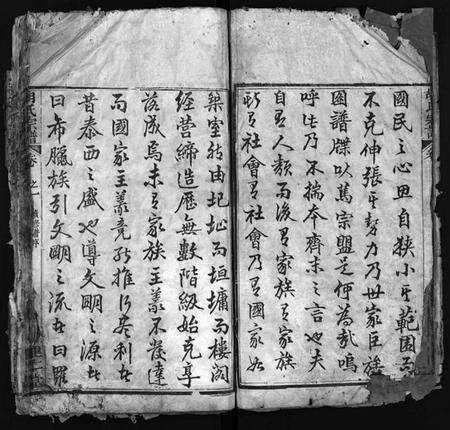 國民之心毋自狹小其範圍而
不克伸張其勢力乃世家巨族
圖譜牒以篤宗盟是何為哉嗚
呼此乃不揣本齊末之言也夫
自有人類而後有家族有家族
斯有社會有社會乃有國家如
築室然由圯址而垣墉而樓閣
經营締造歷無數階級始克享
落成焉未有家族主義不發達
而國家主義竟能推行盡利者
昔泰西之盛也導文明之源者
曰希臘族引文明之流者曰羅